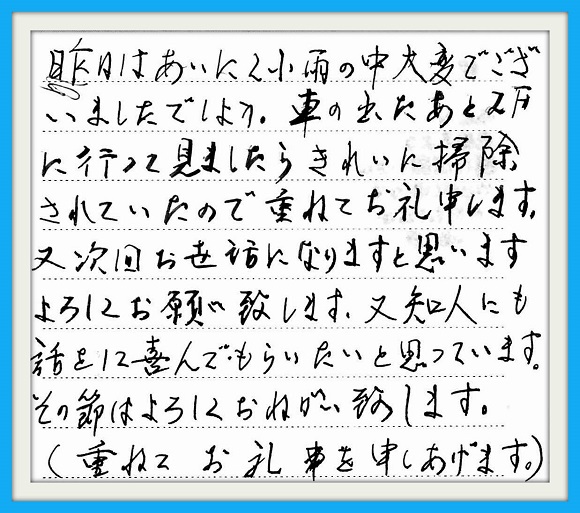 昨日はあいにく小雨の中大変でござ
いましたでしょう。車の出たあと
に行って見ましたらきれいに掃除
されていたので重ねてお礼申します。
又次回お世話になりますと思います
よろしくお願い致します、又知人にも
話をして喜んでもらいたいと思っています。
その節はよろしくおねがい致します。
(重ねて お礼 事を申しあげます。)